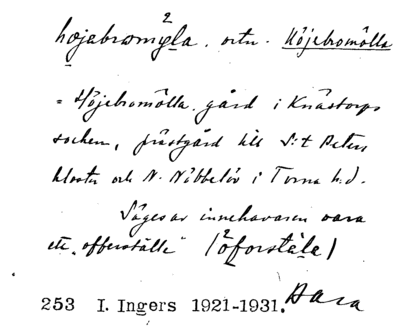 højabromy̨la. ortn. Höjebromölla
= Höjebromölla. gård i Knästorps
socken, prästgård till S:t Peters
kloster och N. Nöbbelöv i Torna h:d.
Säges av innehavaren vara
ett "offerställe" /ofərstälə/
253 I. Ingers 1921-1931. Bara